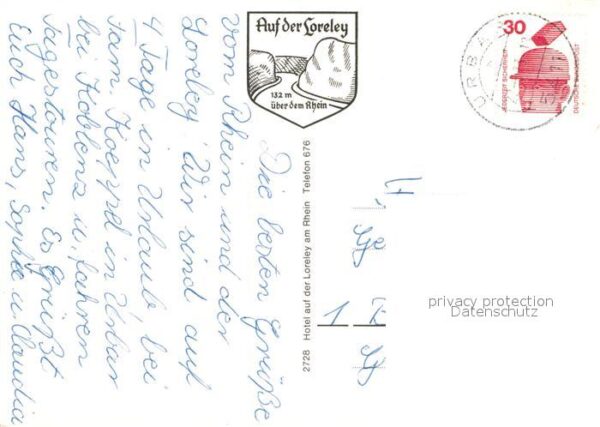 Auf der Loreley
132 m
über dem Rhein
Die besten Grüße
vom Rhein und der
Loreley. Wir sind auf
4 Tage in Urlaub bei
Fam. Koeppel in Urbar
bei Koblenz u. fahren
Tagestouren. Es Grüßt
Euch Hans, Sophie u. Claudia
2728 Hotel auf der Loreley am Rhein Telefon 676
30
JEDERZEIT SICHERHEIT
DEUTSCHE BUNDESPOST
URBA
1
privacy protection
Datenschutz